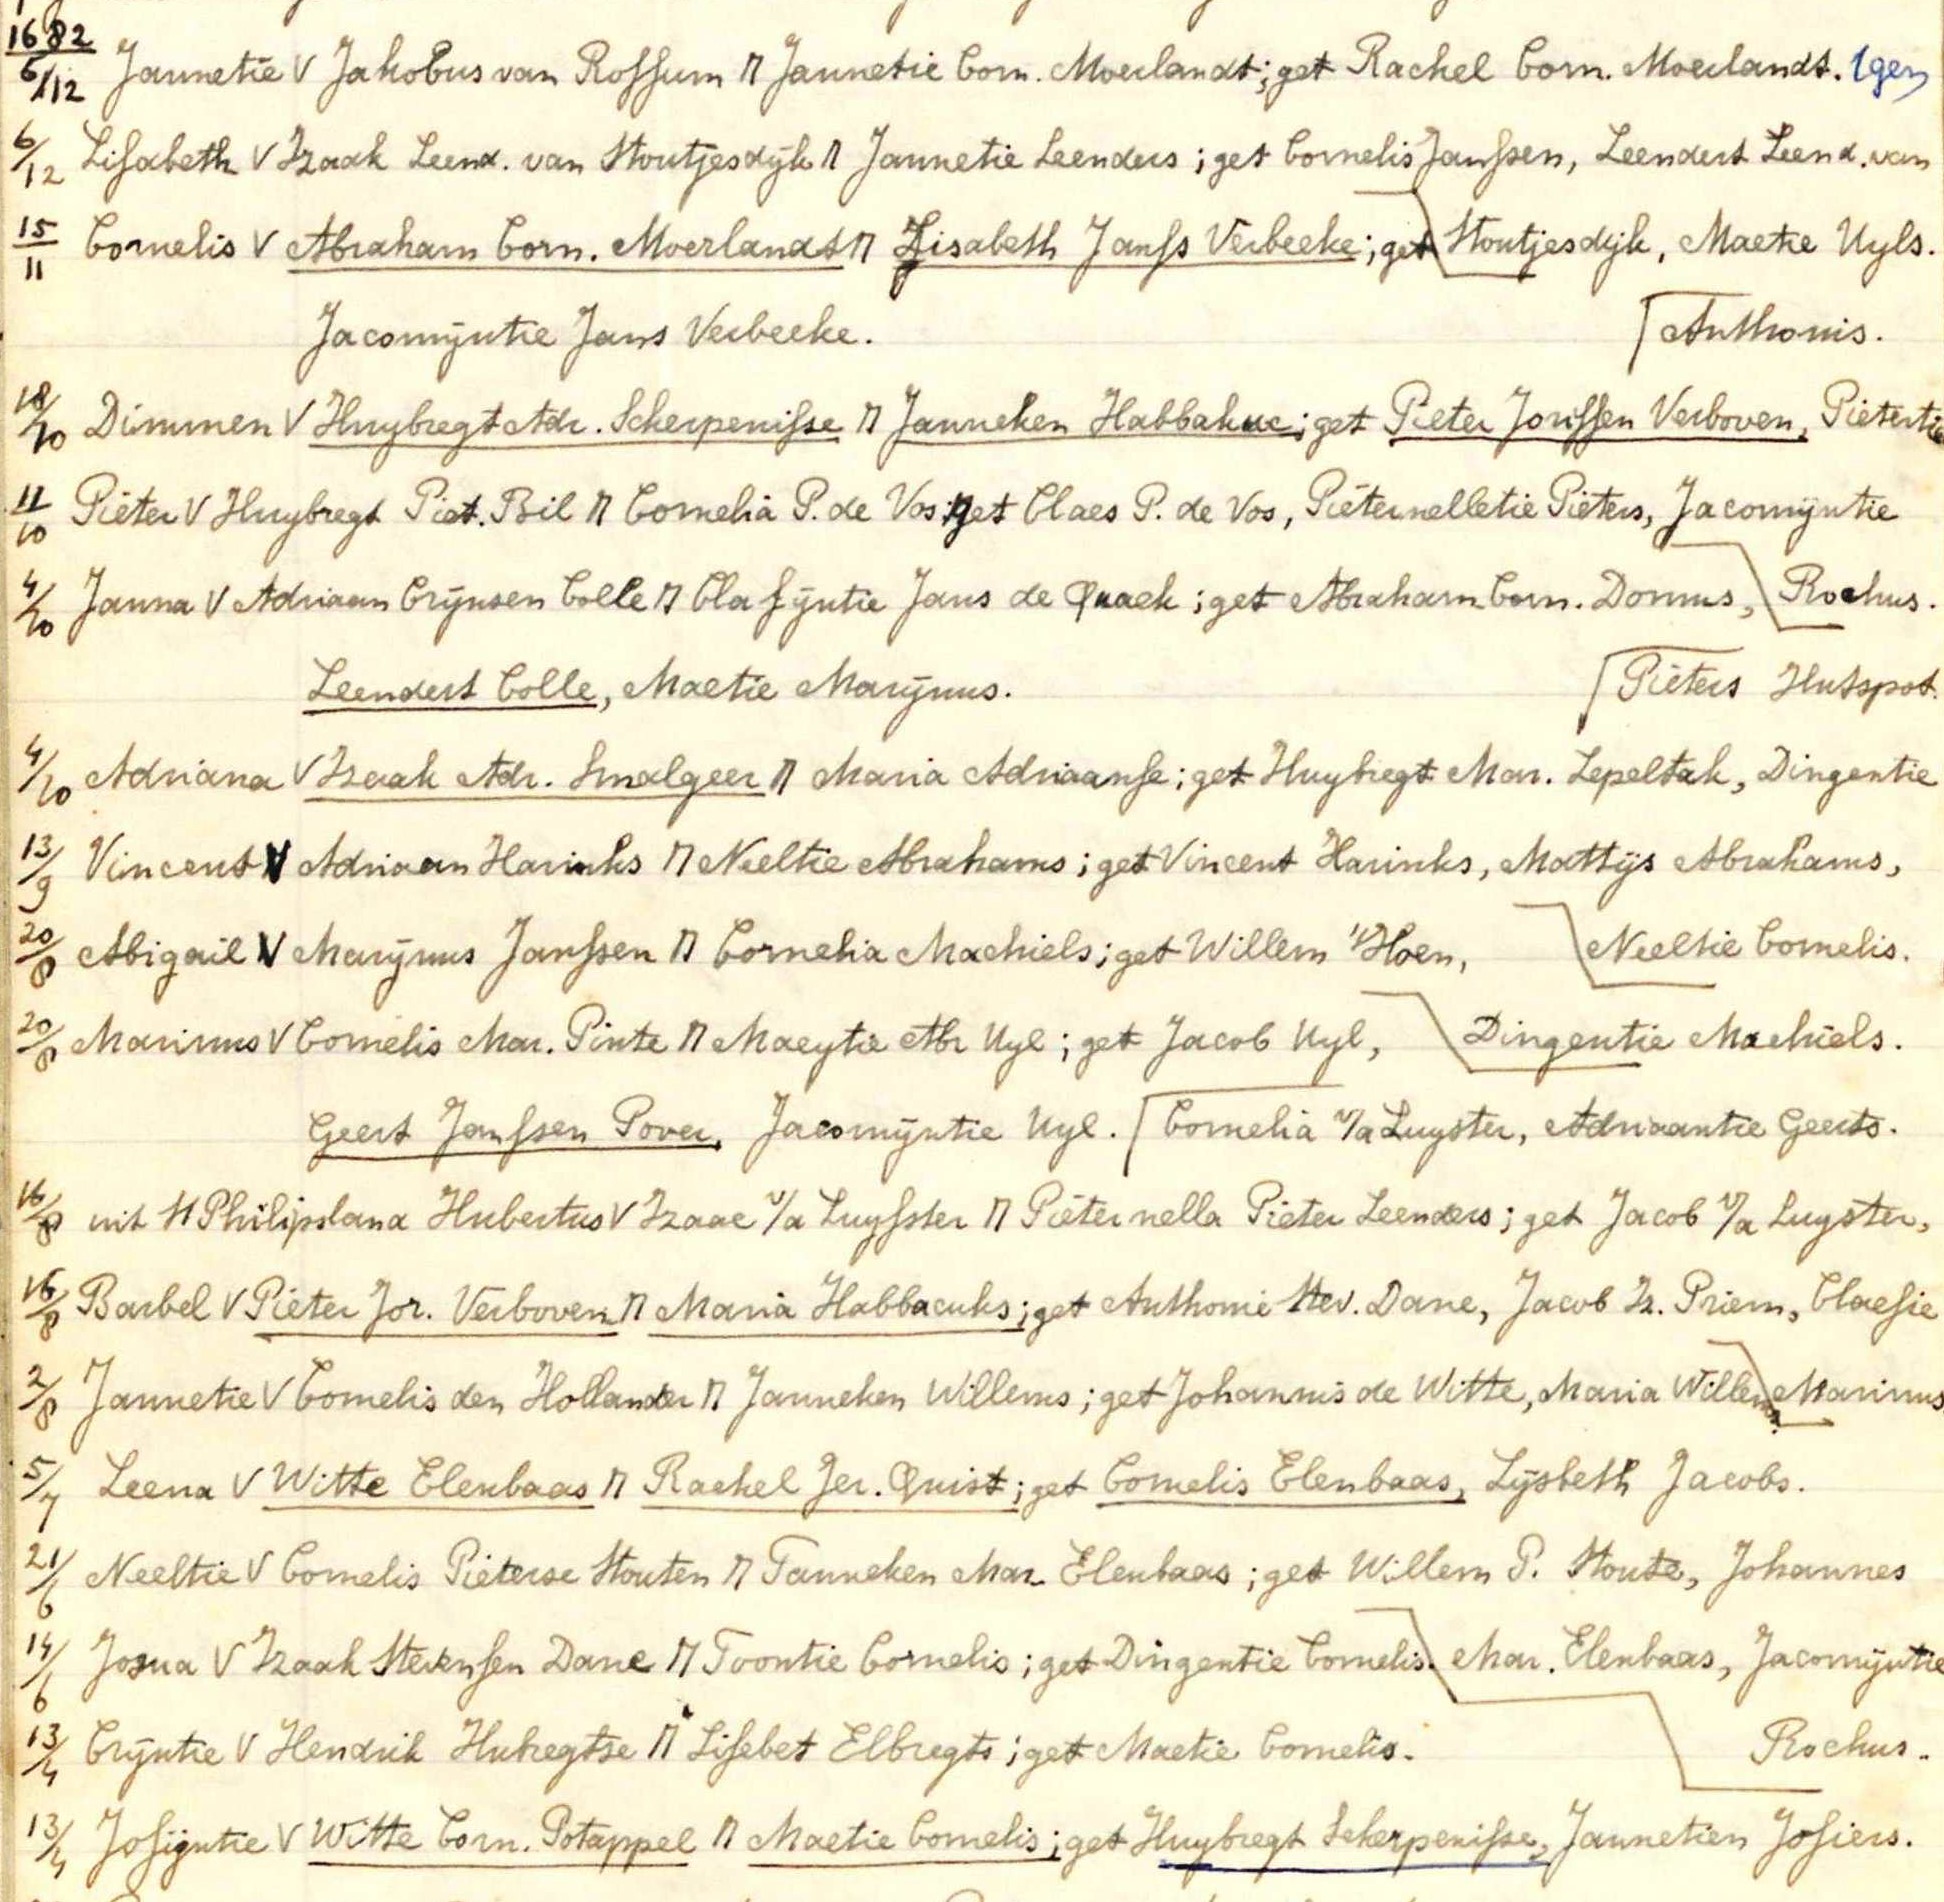 1682
6/12 Jannetie V Jakobus van Rossum П Jannetie Corn. Moerlandt; get Rachel Corn. Moerlandt. 1 gen
6/12 Lisabeth V Izaak Leend. van Stoutjesdijk П Jannetie Leenders ; get Cornelis Janssen, Leendert Leend. van
15/11 Cornelis V Abraham Corn. Moerlandt П Lisabeth Janss Verbeeke ; get Stoutjesdijk, Maetie Uyls.
Jacomijntie Jans Verbeeke. Anthonis.
18/10 Dimmen V Huybregt Adr. Scherpenisse П Janneken Habbakuc ; get Pieter Jorissen Verboven, Pietertie
11/10 Pieter V Huybregt Piet. Bil П Cornelia P. de Vos ; get Claes P. de Vos, Pieternelletie Pieters, Jacomijntie
4/10 Janna V Adriaan Crijnsen Colle П Clasijntie Jans de Quack ; get Abraham Corn. Domus, Rochus.
Leendert Colle, Maetie Marijnus. Pieters Hutspot.
4/10 Adriana V Izaak Adr. Smalgeer П Maria Adriaanse ; get Huybregt Mar. Lepeltak, Dingentie
13/9 Vincent V Adriaan Harinks П Neeltie Abrahams ; get Vincent Harinks, Mattijs Abrahams,
20/8 Abigail V Marijnus Janssen П Cornelia Machiels ; get Willem 't Hoen, Neeltie Cornelis.
20/8 Marinus V Cornelis Mar. Pinte П Maeytie Abr Uyl ; get Jacob Uyl, Dingentie Machiels.
Geert Janssen Pover, Jacomijntie Uyl. Cornelia v/d Luyster, Adriaantie Geerts.
16/8 uit St Philipsland Hubertus V Izaac v/d Luysster П Pieternella Pieter Leenders ; get Jacob v/d Luyster,
16/8 Barbel V Pieter Jor. Verboven П Maria Habbacuks ; get Anthoni Stev. Dane, Jacob Iz. Priem, Claesie
2/8 Jannetie V Cornelis den Hollander П Janneken Willems ; get Johannis de Witte, Maria Willems Marinus
5/7 Leena V Witte Elenbaas П Rachel Jer. Quist ; get Cornelis Elenbaas, Lijsbeth Jacobs.
21/6 Neeltie V Cornelis Pieterse Stouten П Tanneken Mar. Elenbaas ; get Willem P. Stoute, Johannes
14/6 Josua V Izaak Stevensen Dane П Toontie Cornelis ; get Dingentie Cornelis. Mar. Elenbaas, Jacomijntie
13/4 Crijntie V Hendrik Hubregtse П Lisebet Elbregts ; get Maetie Cornelis. Rochus.
13/4 Josijntie V Witte Corn. Potappel П Maetie Cornelis ; get Huybregt Scherpenisse, Jannetien Josiers.